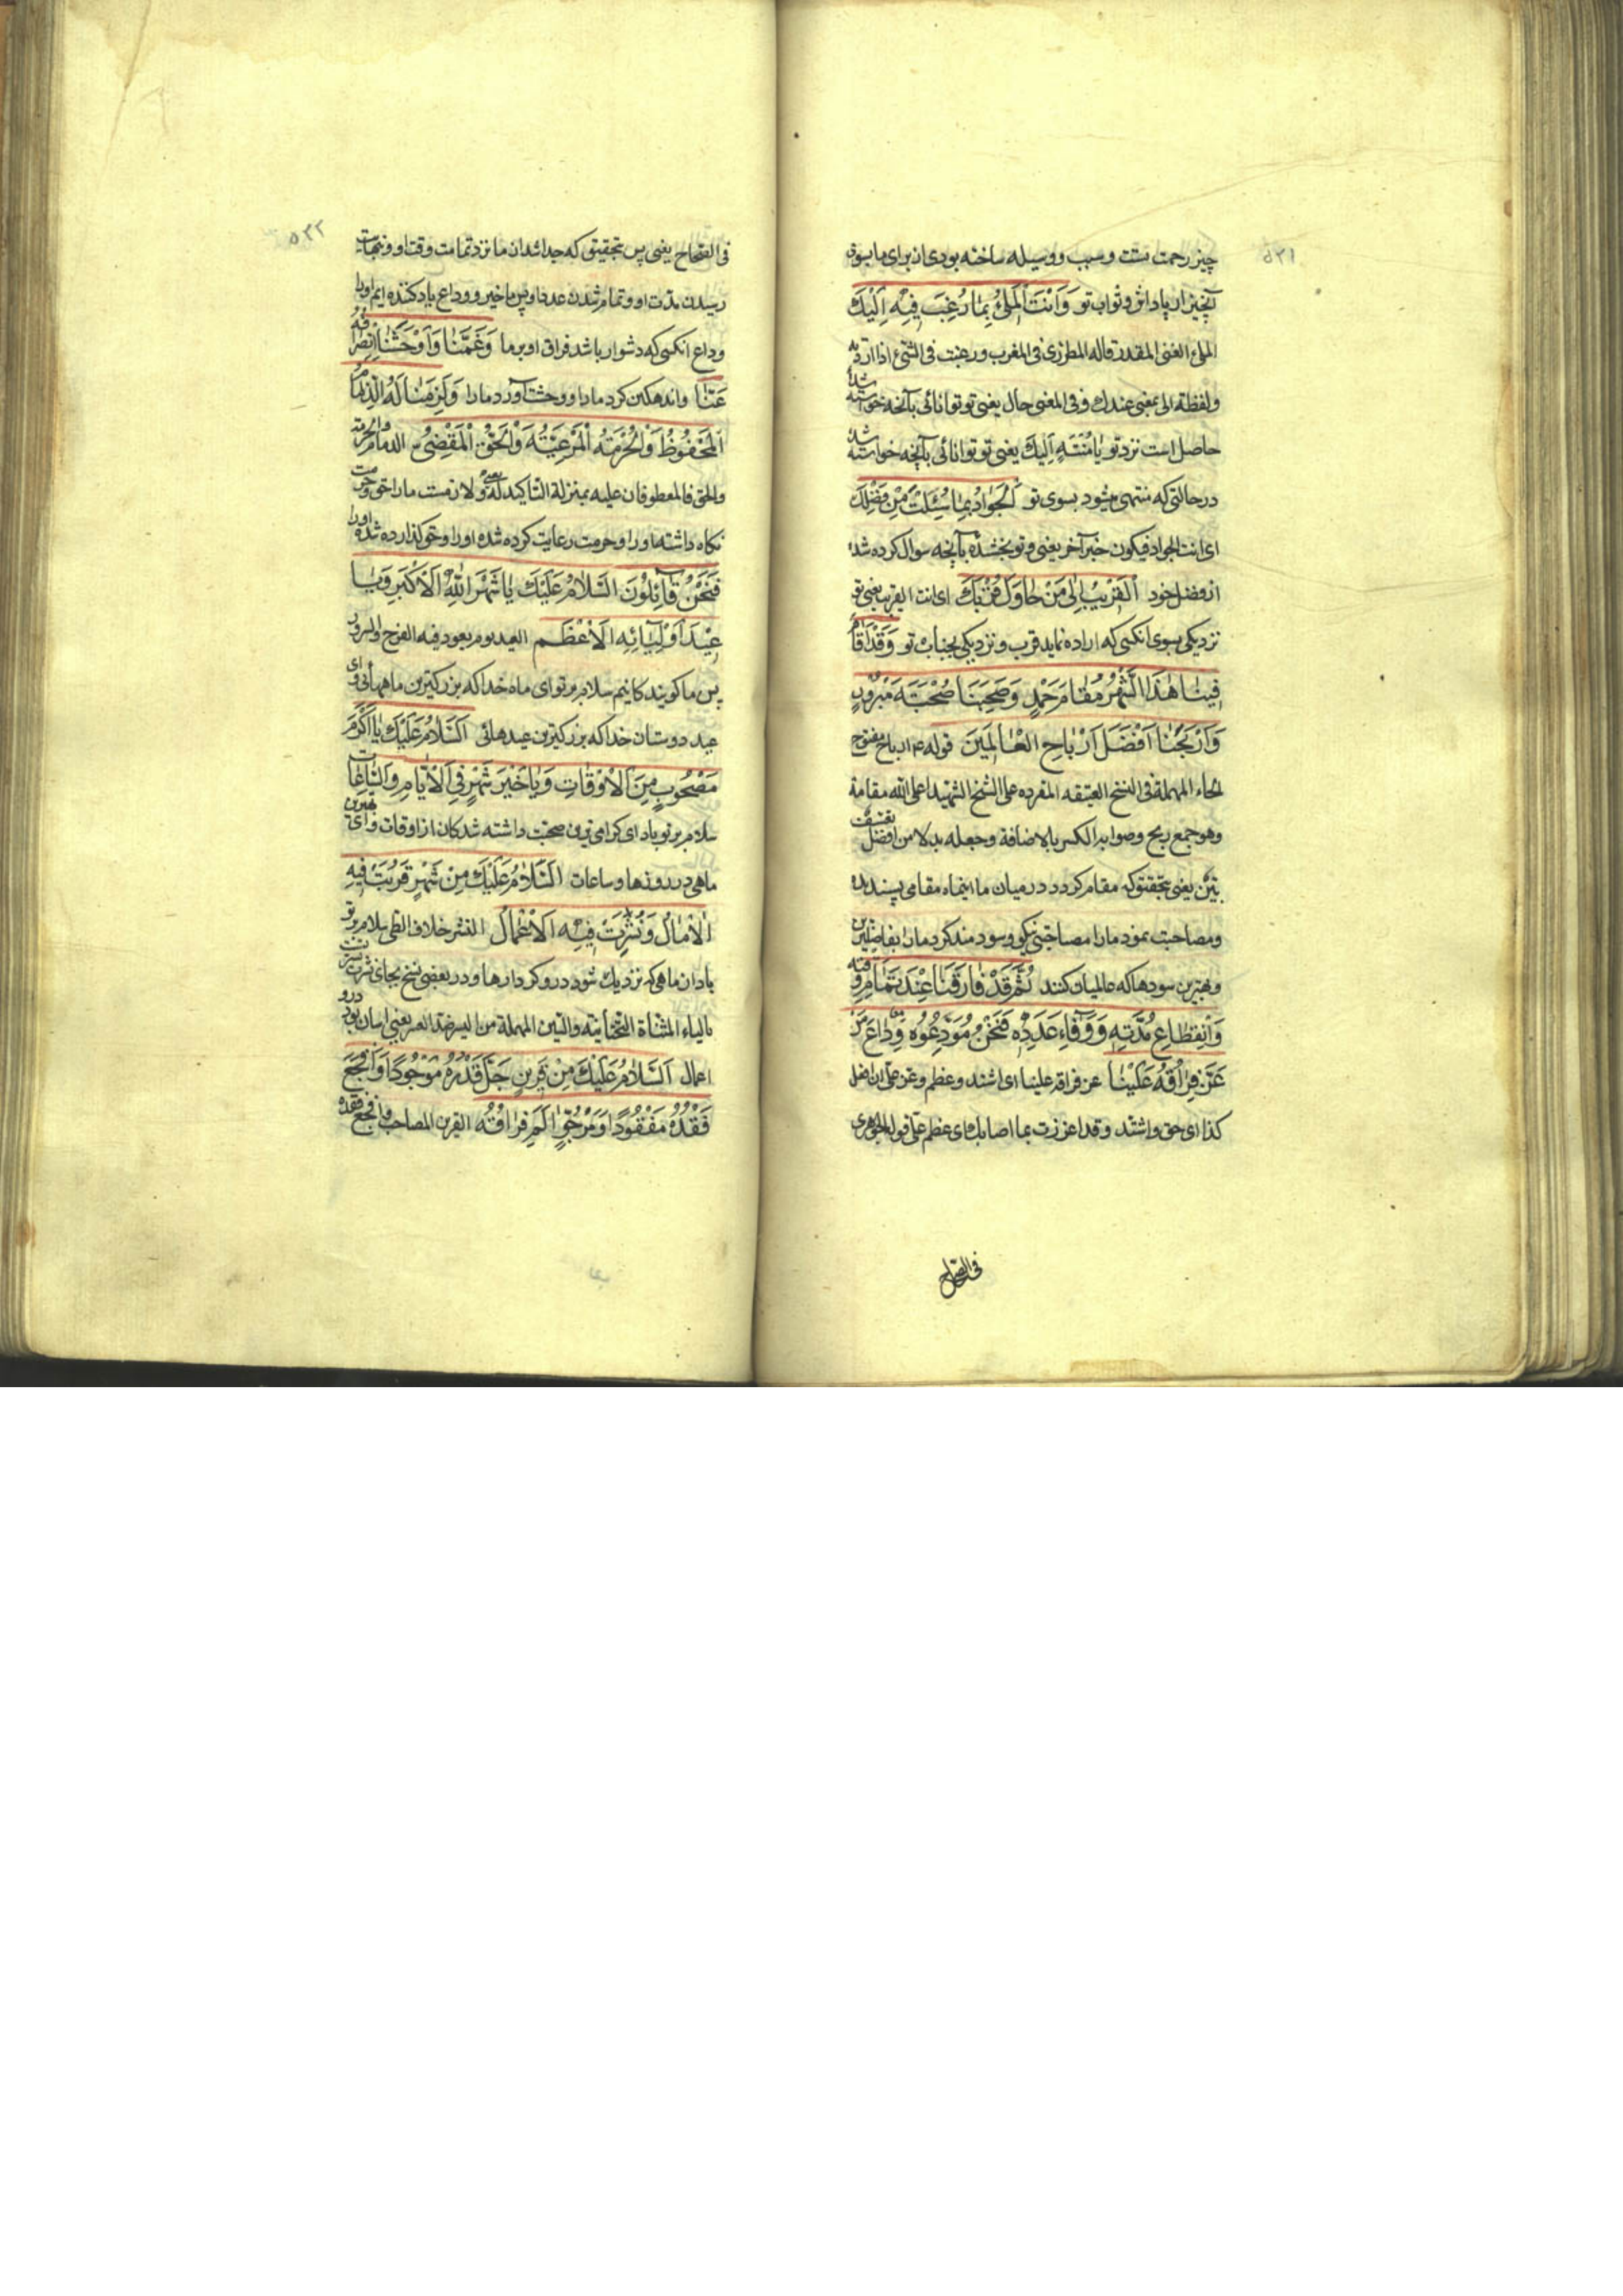 ۵۳۱
چیز رحمت تست و سبب و وسیله ساخته بودی از برای ما بسوی
آنچیز از پاداش و ثواب تو وَاَنْتَ الْمَلِیُّ بِمٰا رُغِبَ فِیْهِ اِلَیْكَ
الملئ الغنی المقتدر قاله المطرزی فی المغرب و رغبت فی الشئ اذا اردته
ولفظة الی بمعنی عندك و فی المعنی حال یعنی تو توانائی بآنچه خواسته شده
حاصل است نزد تو یا مُنْتَهٍ اِلَیْكَ یعنی تو توانائی بآنچه خواسته شد
در حالتی که منتهی میشود بسوی تو اَلْجَوٰادُ بِمٰا سُئِلْتَ مِنْ فَضْلِكَ
ای انت الجواد فیکون خبر آخر یعنی و تو بخشندهٔ بآنچه سوال کرده شد
از فضل خود اَلْقَرِیْبُ اِلٰی مَنْ حٰاوَلَ قُرْبَكَ ای انت القریب یعنی تو
نزدیکی بسوی انکسی که اراده نماید قرب و نزدیکی بجناب تو وَقَدْ اَقٰامَ
فِیْنٰا هٰذَا الشَّهْرُ مُقٰامَ حَمْدٍ وَصَحِبَنٰا صُحْبَةَ مَبْرُوْرٍ
وَاَرْبَحَنٰا اَفْضَلَ اَرْبٰاحِ الْعٰالَمِیْنَ قوله ع ارباح مفتوح
الحاء المهملة فی النسخ العتیقه المقرده علی الشیخ الشهید اعلی الله مقامة
وهو جمع ربح و صوابه الکسر بالاضافة و جعله بدلا من افضل تعسف
بیّن یعنی بتحقیق که مقام کرد در میان ما اینماه مقامی پسندیده
و مصاحبت نمود ما را مصاحبتی نیکو و سودمند کرد ما را بفاضلترین
و بهترین سودها که عالمیان کنند ثُمَّ قَدْ فٰارَقَنٰا عِنْدَ تَمٰامِ وَقْتِهٖ
وَاَنْقِطٰاعِ مُدَّتِهٖ وَ وَفٰاءِ عَدَدِهٖ فَنَحْنُ مُوَدِّعُوْهُ وِدٰاعَ مَنْ
عَزَّ فِرٰاقُهُ عَلَیْنٰا عز فراقه علینا ای اشتد و عظم و عز علی ان افعل
کذا ای حق و اشتد و قد اعززت بما اصابك ای عظم علی قوله الجوهری
فی الصحاح
۵۳۲
فی الصحاح یعنی پس بتحقیق که جدا شد از ما نزد تمامت وقت او و بنهایت
رسیدن مدت او و تمام شدن عدد او پس ما خیر و وداع یاد کننده ایم او را
وداع انکسی که دشوار باشد فراق او بر ما وَغَمَّنٰا وَاَوْحَشَنٰا اِنْصِرٰافُهُ
عَنّٰا و اندهکین کرد ما را و وحشت آورد ما را وَلَزِمَنٰا لَهُ الذِّمٰامُ
الْمَحْفُوْظُ وَالْحُرْمَةُ الْمَرْعِیَّةُ وَالْحَقُّ الْمَقْضِیُّ الذمام الحرمة
والحق فالمعطوفان علیه بمنزلة التاکید له یعنی و لازمست ما را حق و حرمت
نکاه داشته او را و حرمت رعایت کرده شده او را و حق کذارده شده او را
فَنَحْنُ قٰائِلُوْنَ اَلسَّلاٰمُ عَلَیْكَ یٰا شَهْرَ اللّٰهِ الْاَكْبَرِ وَیٰا
عِیْدَ اَوْلِیٰائِهِ الْاَعْظَمِ العید یوم یعود فیه الفرح والسرور
پس ما کویندکانیم سلام بر تو ای ماه خدا که بزرکترین ماههائی و ای
عید دوستان خدا که بزرکترین عیدهائی اَلسَّلاٰمُ عَلَیْكَ یٰا اَكْرَمَ
مَصْحُوْبٍ مِنَ الْاَوْقٰاتِ وَیٰا خَیْرَ شَهْرٍ فِی الْاَیّٰامِ وَالسّٰاعٰاتِ
سلام بر تو باد ای کرامی ترین صحبت داشته شدکان از اوقات و ای بهترین
ماهی در روزها و ساعات اَلسَّلاٰمُ عَلَیْكَ مِنْ شَهْرٍ قَرُبَتْ فِیْهِ
الْاٰمٰالُ وَنُشِرَتْ فِیْهِ الْاَعْمٰالُ النشر خلاف الطی سلام بر تو
باد از ماهی که نزدیك شود در و کردارها و در بعضی نسخ بجای نشرت یسرت
بالیاء المثناة التحتانیته والسین المهملة من الیسر ضد العسر یعنی اسان بود درو
اعمال اَلسَّلاٰمُ عَلَیْكَ مِنْ قَرِیْنٍ جَلَّ قَدْرُهُ مَوْجُوْدًا وَاَفْجَعَ
فَقْدُهُ مَفْقُوْدًا وَمَرْجُوٍّ اٰلَمَ فِرٰاقُهُ القرین المصاحب و افجع فقده